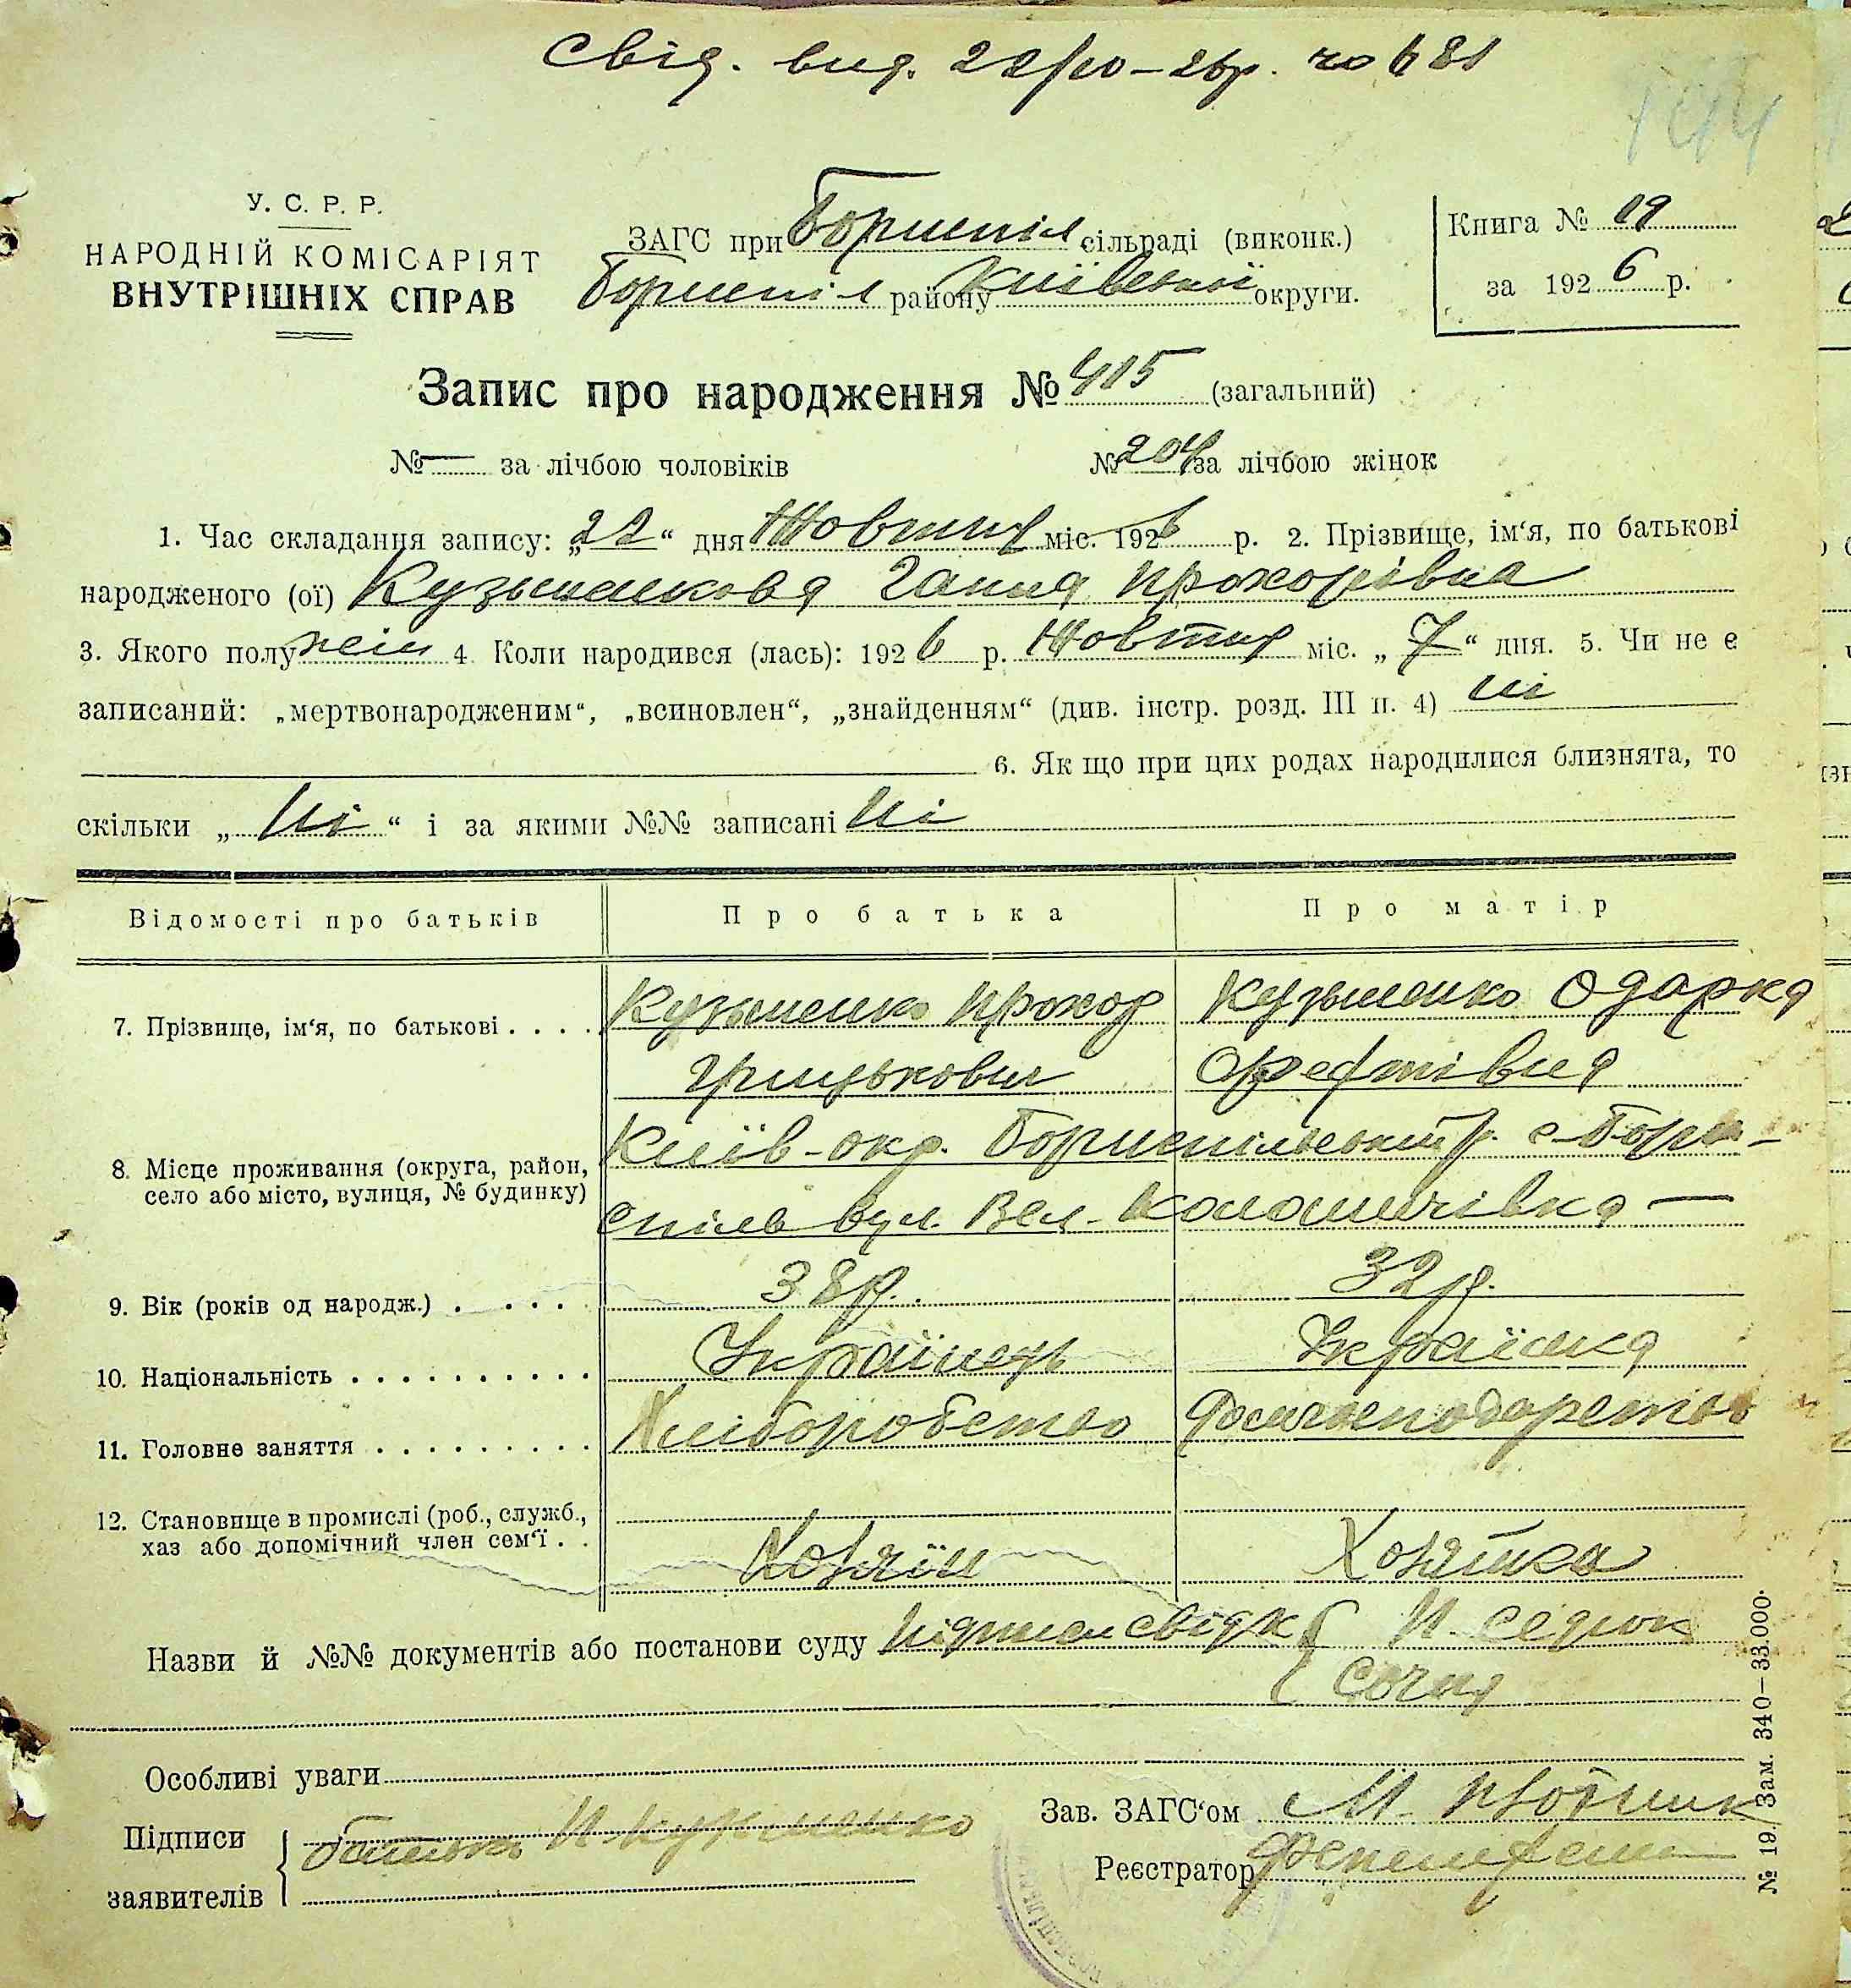 Свід. вид. 22/10-26р. № 681
144
У. С. Р. Р.
НАРОДНІЙ КОМІСАРІЯТ
ВНУТРІШНІХ СПРАВ
ЗАГС при Бориспіл сільраді (виконк.)
Бориспіл району Київської округи.
Книга № 19
за 1926 р.
Запис про народження № 415 (загальний)
№ — за лічбою чоловіків
№ 204 за лічбою жінок
1. Час складання запису: „22“ дня Жовтня міс. 1926 р. 2. Прізвище, ім‘я, по батькові
народженого (ої) Кузьменкова Ганна Прохорівна
3. Якого полу жін 4. Коли народився (лась): 1926 р. Жовтня міс. „7“ дня. 5. Чи не є
записаний: „мертвонародженим“, „всиновлен“, „знайденням“ (див. інстр. розд. III п. 4) ні
6. Як що при цих родах народилися близнята, то
скільки „Ні“ і за якими №№ записані Ні
Відомості про батьків Про батька Про матір
7. Прізвище, ім‘я, по батькові . . . . Кузьменко Прохор Кузьменко Одарка
Грицькович
8. Місце проживання (округа, район,
село або місто, вулиця, № будинку)
Київ-окр. Бориспільський р. с-Бори-
спіль вул. Вел-
9. Вік (років од народж.) . . . . 38р. 32р.
10. Національність . . . . . . . . . . Українець Українка
11. Головне заняття . . . . . . . . . Хліборобство
12. Становище в промислі (роб., служб.,
хаз або допомічний член сем‘ї . .
Хозяїн Хозяйка
Назви й №№ документів або постанови суду
Особливі уваги
Підписи
заявителів
батько П Кузьменко
Зав. ЗАГС‘ом М.
Реєстратор
№ 19. Зам. 340–33.000.